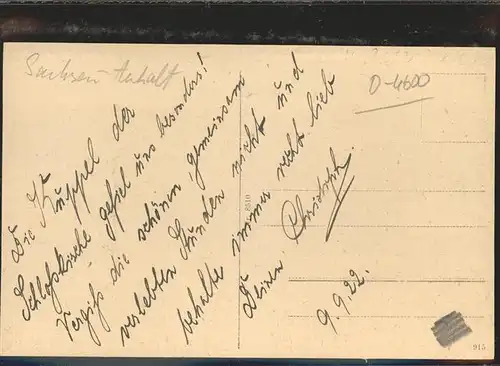 Sachsen-Anhalt
D-4600
Die Kuppel der
Schloßkirche gefiel uns besonders!
Vergiß die schönen, gemeinsam
verlebten Stunden nicht und
behalte immer recht lieb
Deinen
9.9.22.
8510
915